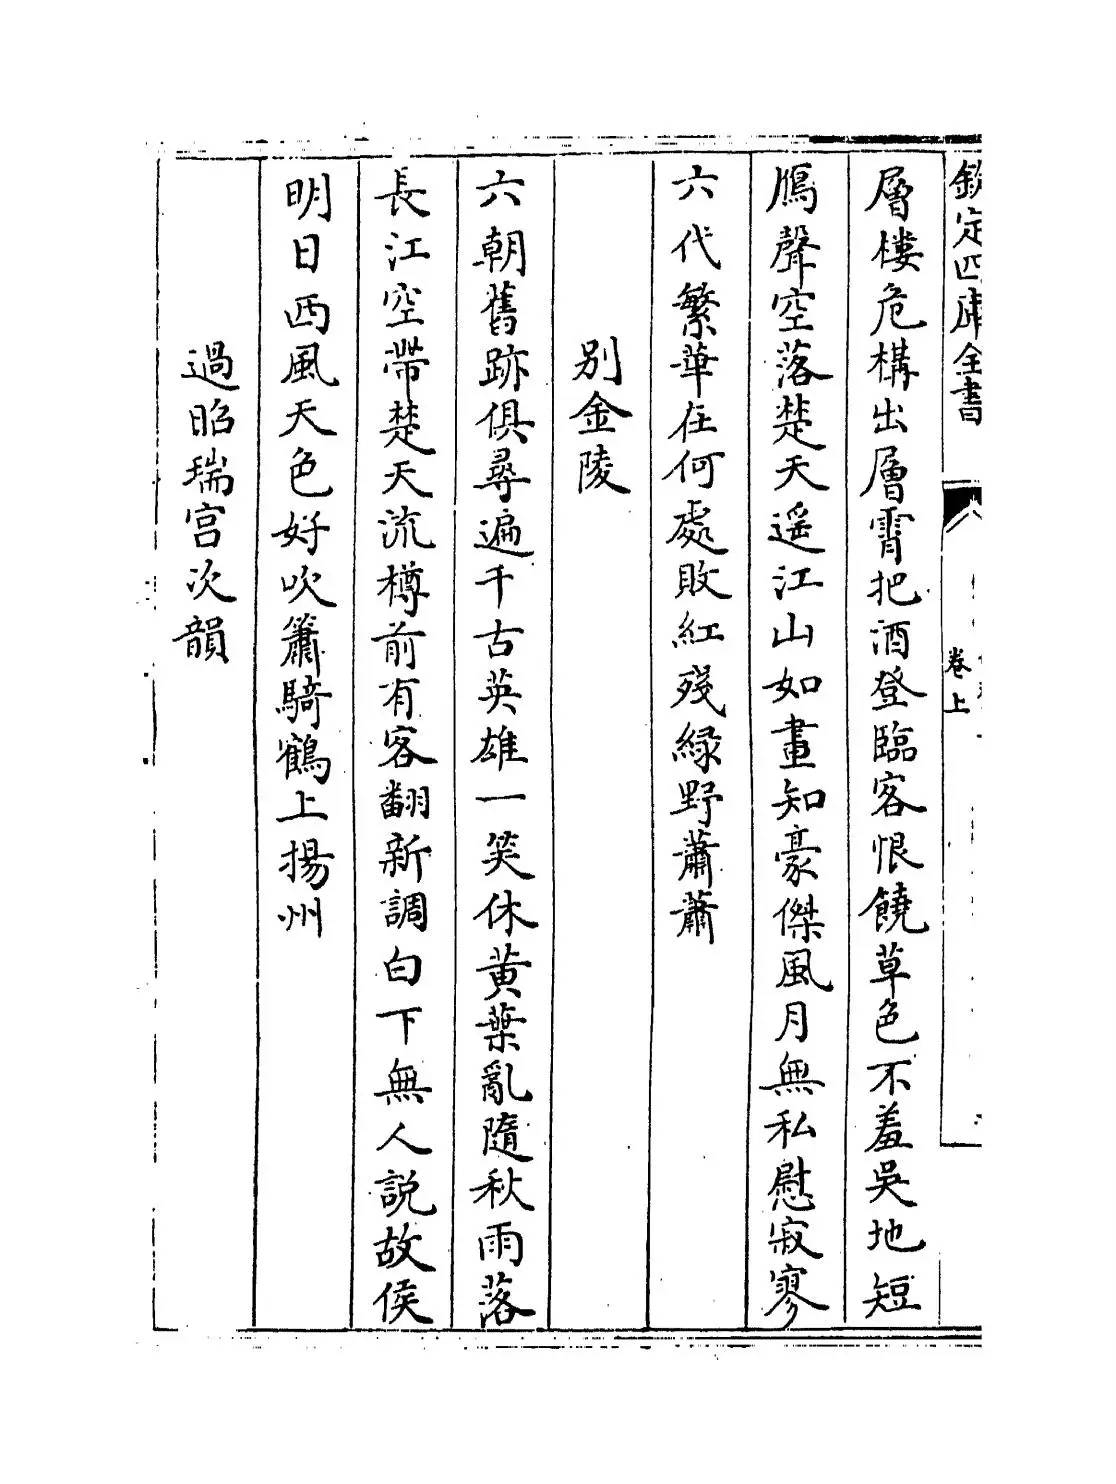 欽定四庫全書
卷上
層樓危構出層霄把酒登臨客恨饒草色不羞吳地短
鴈聲空落楚天遥江山如畫知豪傑風月無私慰寂寥
六代繁華在何處敗紅殘緑野蕭蕭
別金陵
六朝舊跡俱尋遍千古英雄一笑休黄葉亂隨秋雨落
長江空帶楚天流樽前有客翻新調白下無人説故侯
明日西風天色好吹簫騎鶴上揚州
過昭瑞宫次韻